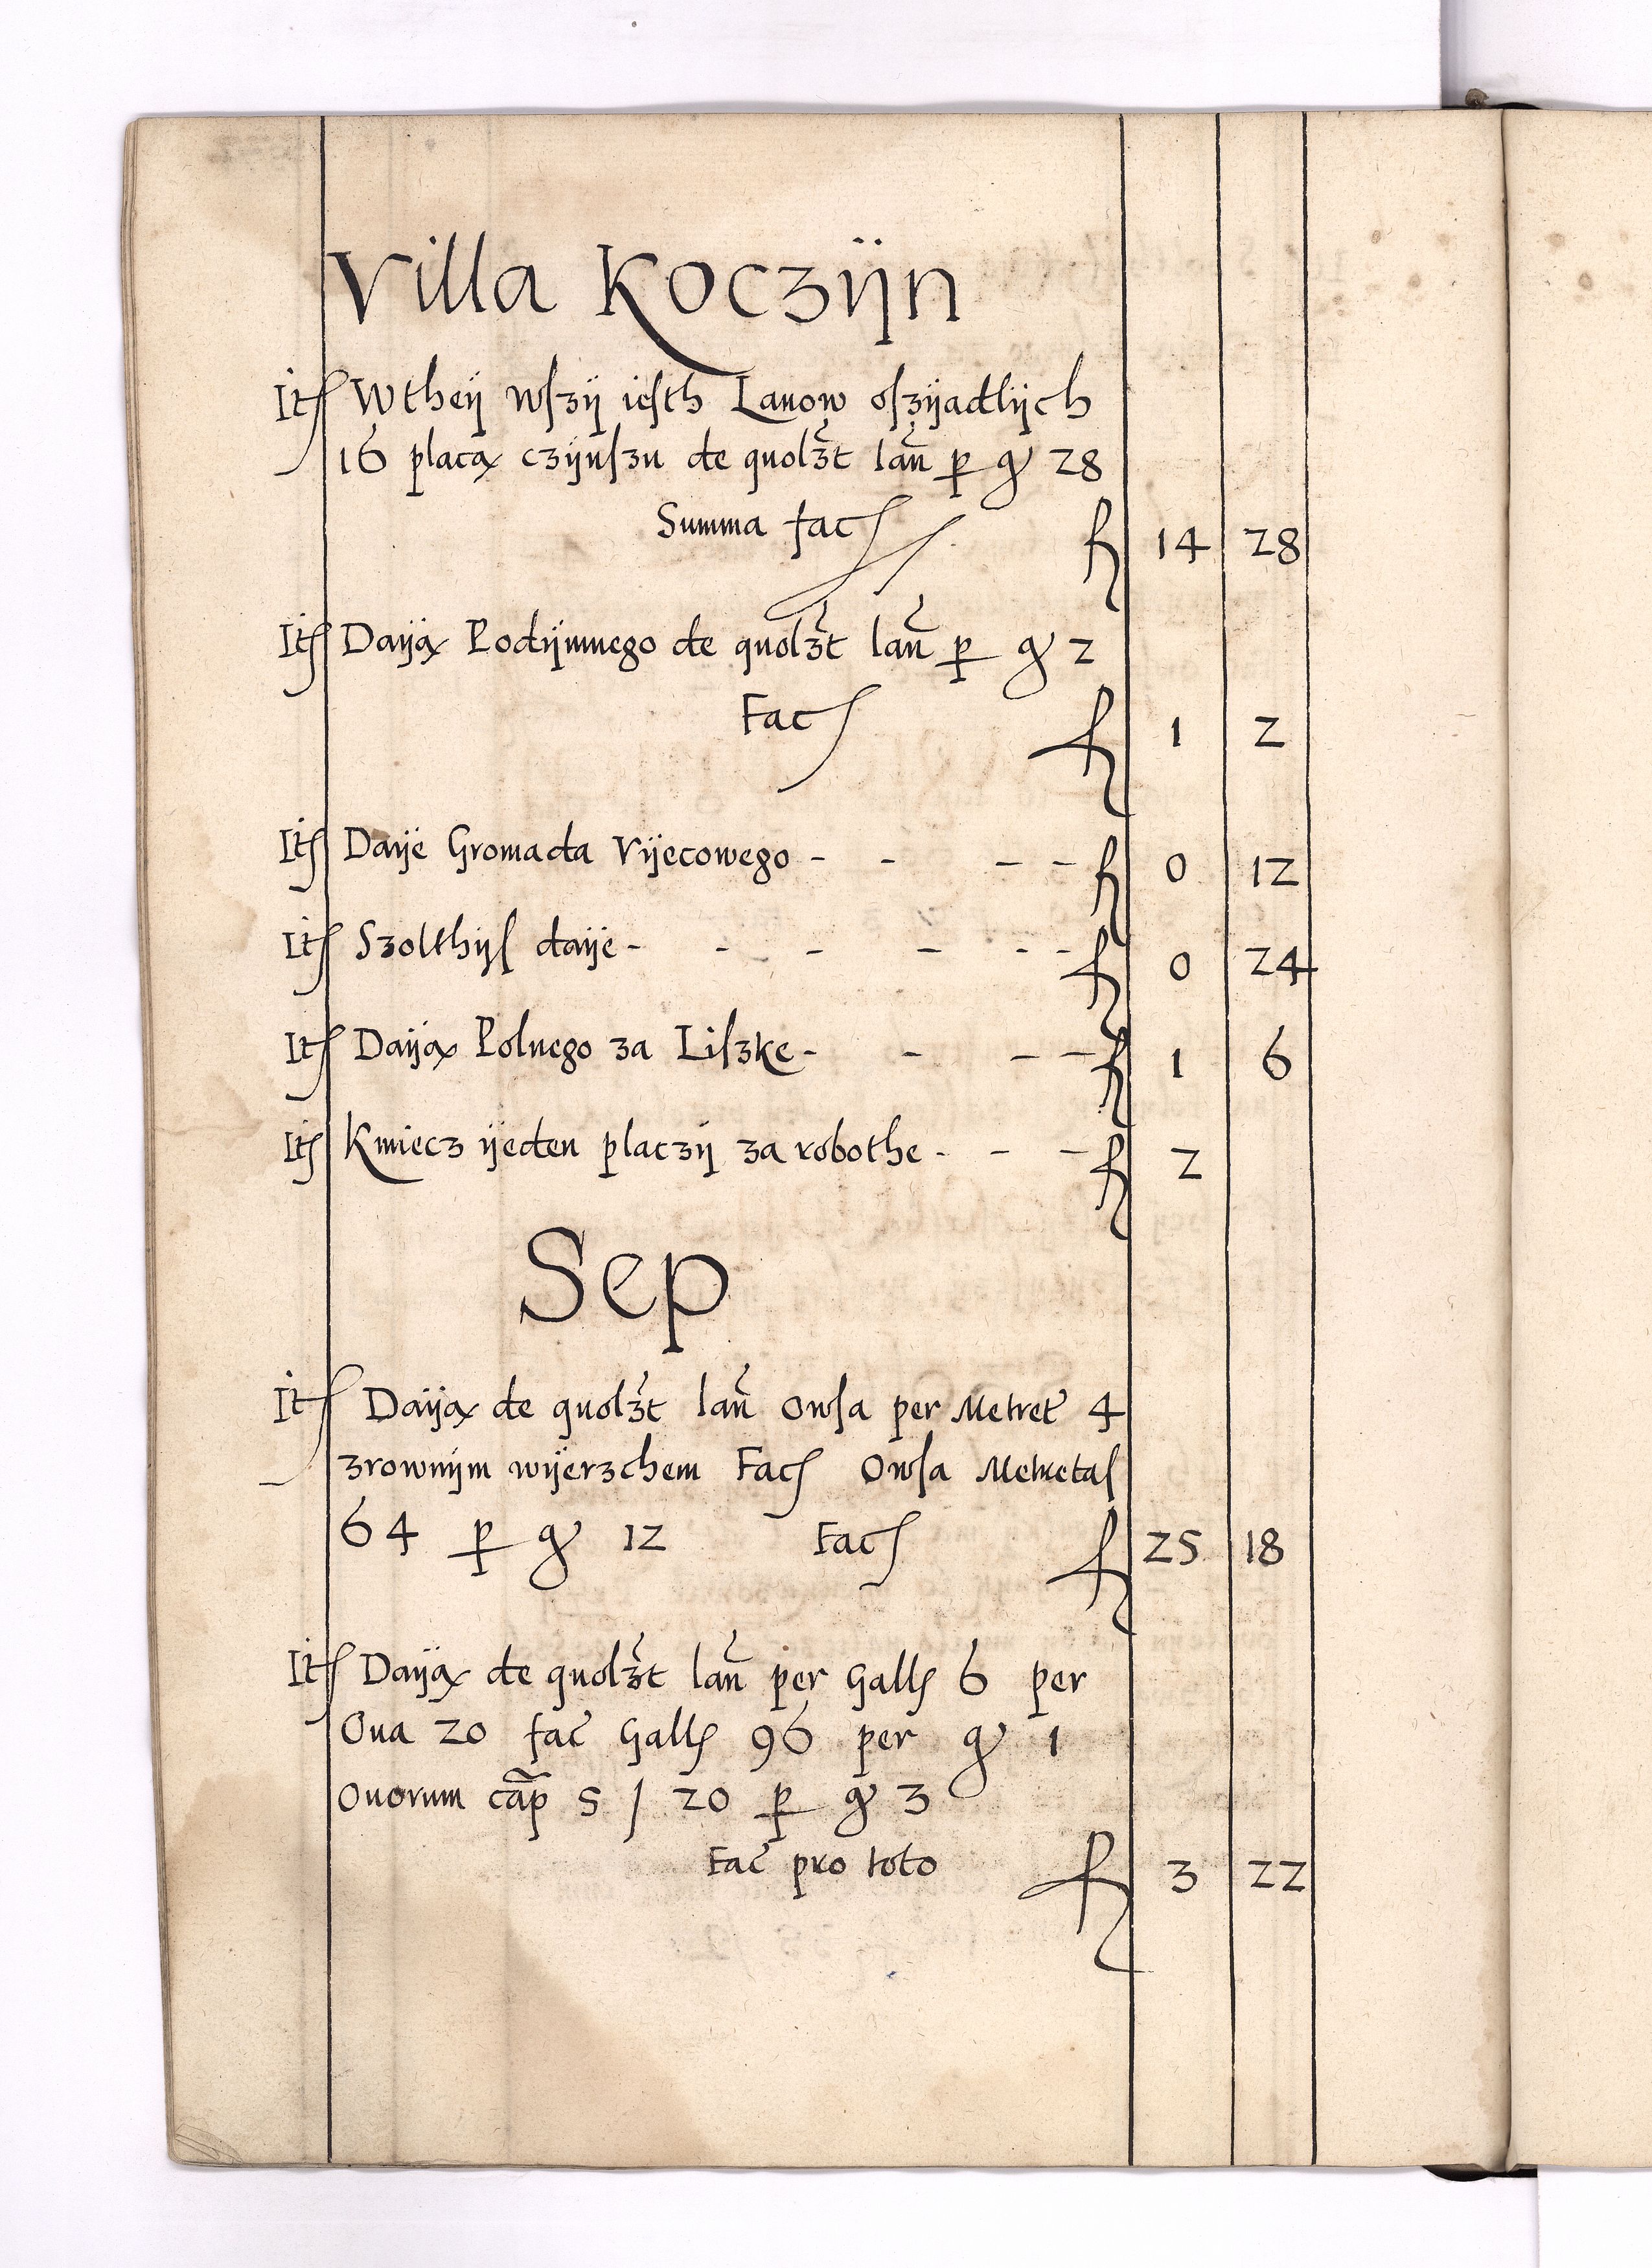 Villa Koczÿn
It⟨em⟩ Wtheÿ wſzÿ ieſth Lanow oſzÿadlÿch
16 placą czÿnſzu de quolz̃t lañ ꝑ gr 28
Summa fac̃ fl 14 28
It⟨em⟩ Daÿą Podÿmnego de quolz̃t lañ ꝑ gr 2
Fac̃ fl 1 2
It⟨em⟩ Daÿe Gromada Vÿecowego - - - - fl 0 12
It⟨em⟩ Szolthÿſ daÿe - - - - - - fl 0 24
It⟨em⟩ Daÿą Polnego za Liſzke - - - - fl 1 6
It⟨em⟩ Kmiecz ÿeden placzÿ za robothe - - - fl 2
Sep
It⟨em⟩ Daÿą de quolz̃t lañ Owſa per Metret̃ 4
zrownÿm wÿerzchem Fac̃ Owſa Metretaſ
64 ꝑ gr 12 Fac̃ fl 25 18
It⟨em⟩ Daÿą de quolz̃t lañ per Gall 6 per
Oua 20 fac̃ Gall 96 per gr 1
Ouorum cap̃ 5 / 20 ꝑ gr 3
Fac̃ pro toto fl 3 22